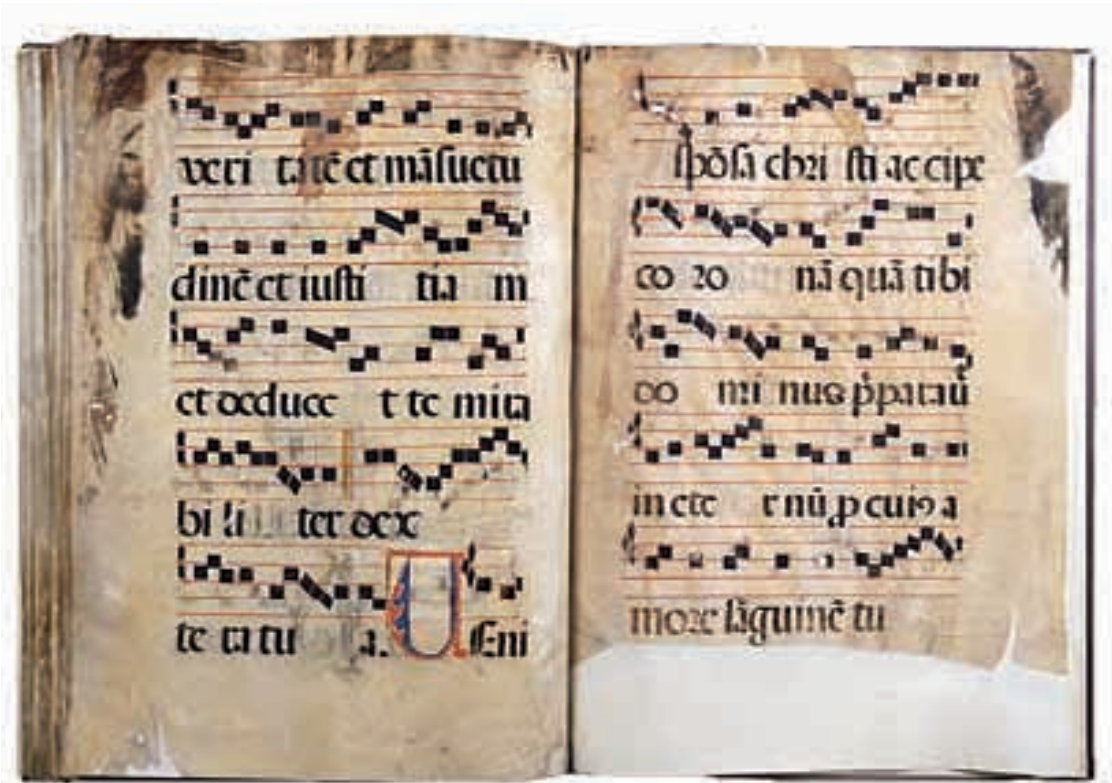 veri tatē et māsuetu
dinē et iusti tia m
et deduce t te mira
bi li ter dex
te ra tu a. VEni
spōsa chri sti accipe
co ro nā quā tibi
do mi nus p̄parauit
in ete r nū ꝓ cuiꝰ a
more sāguinē tu